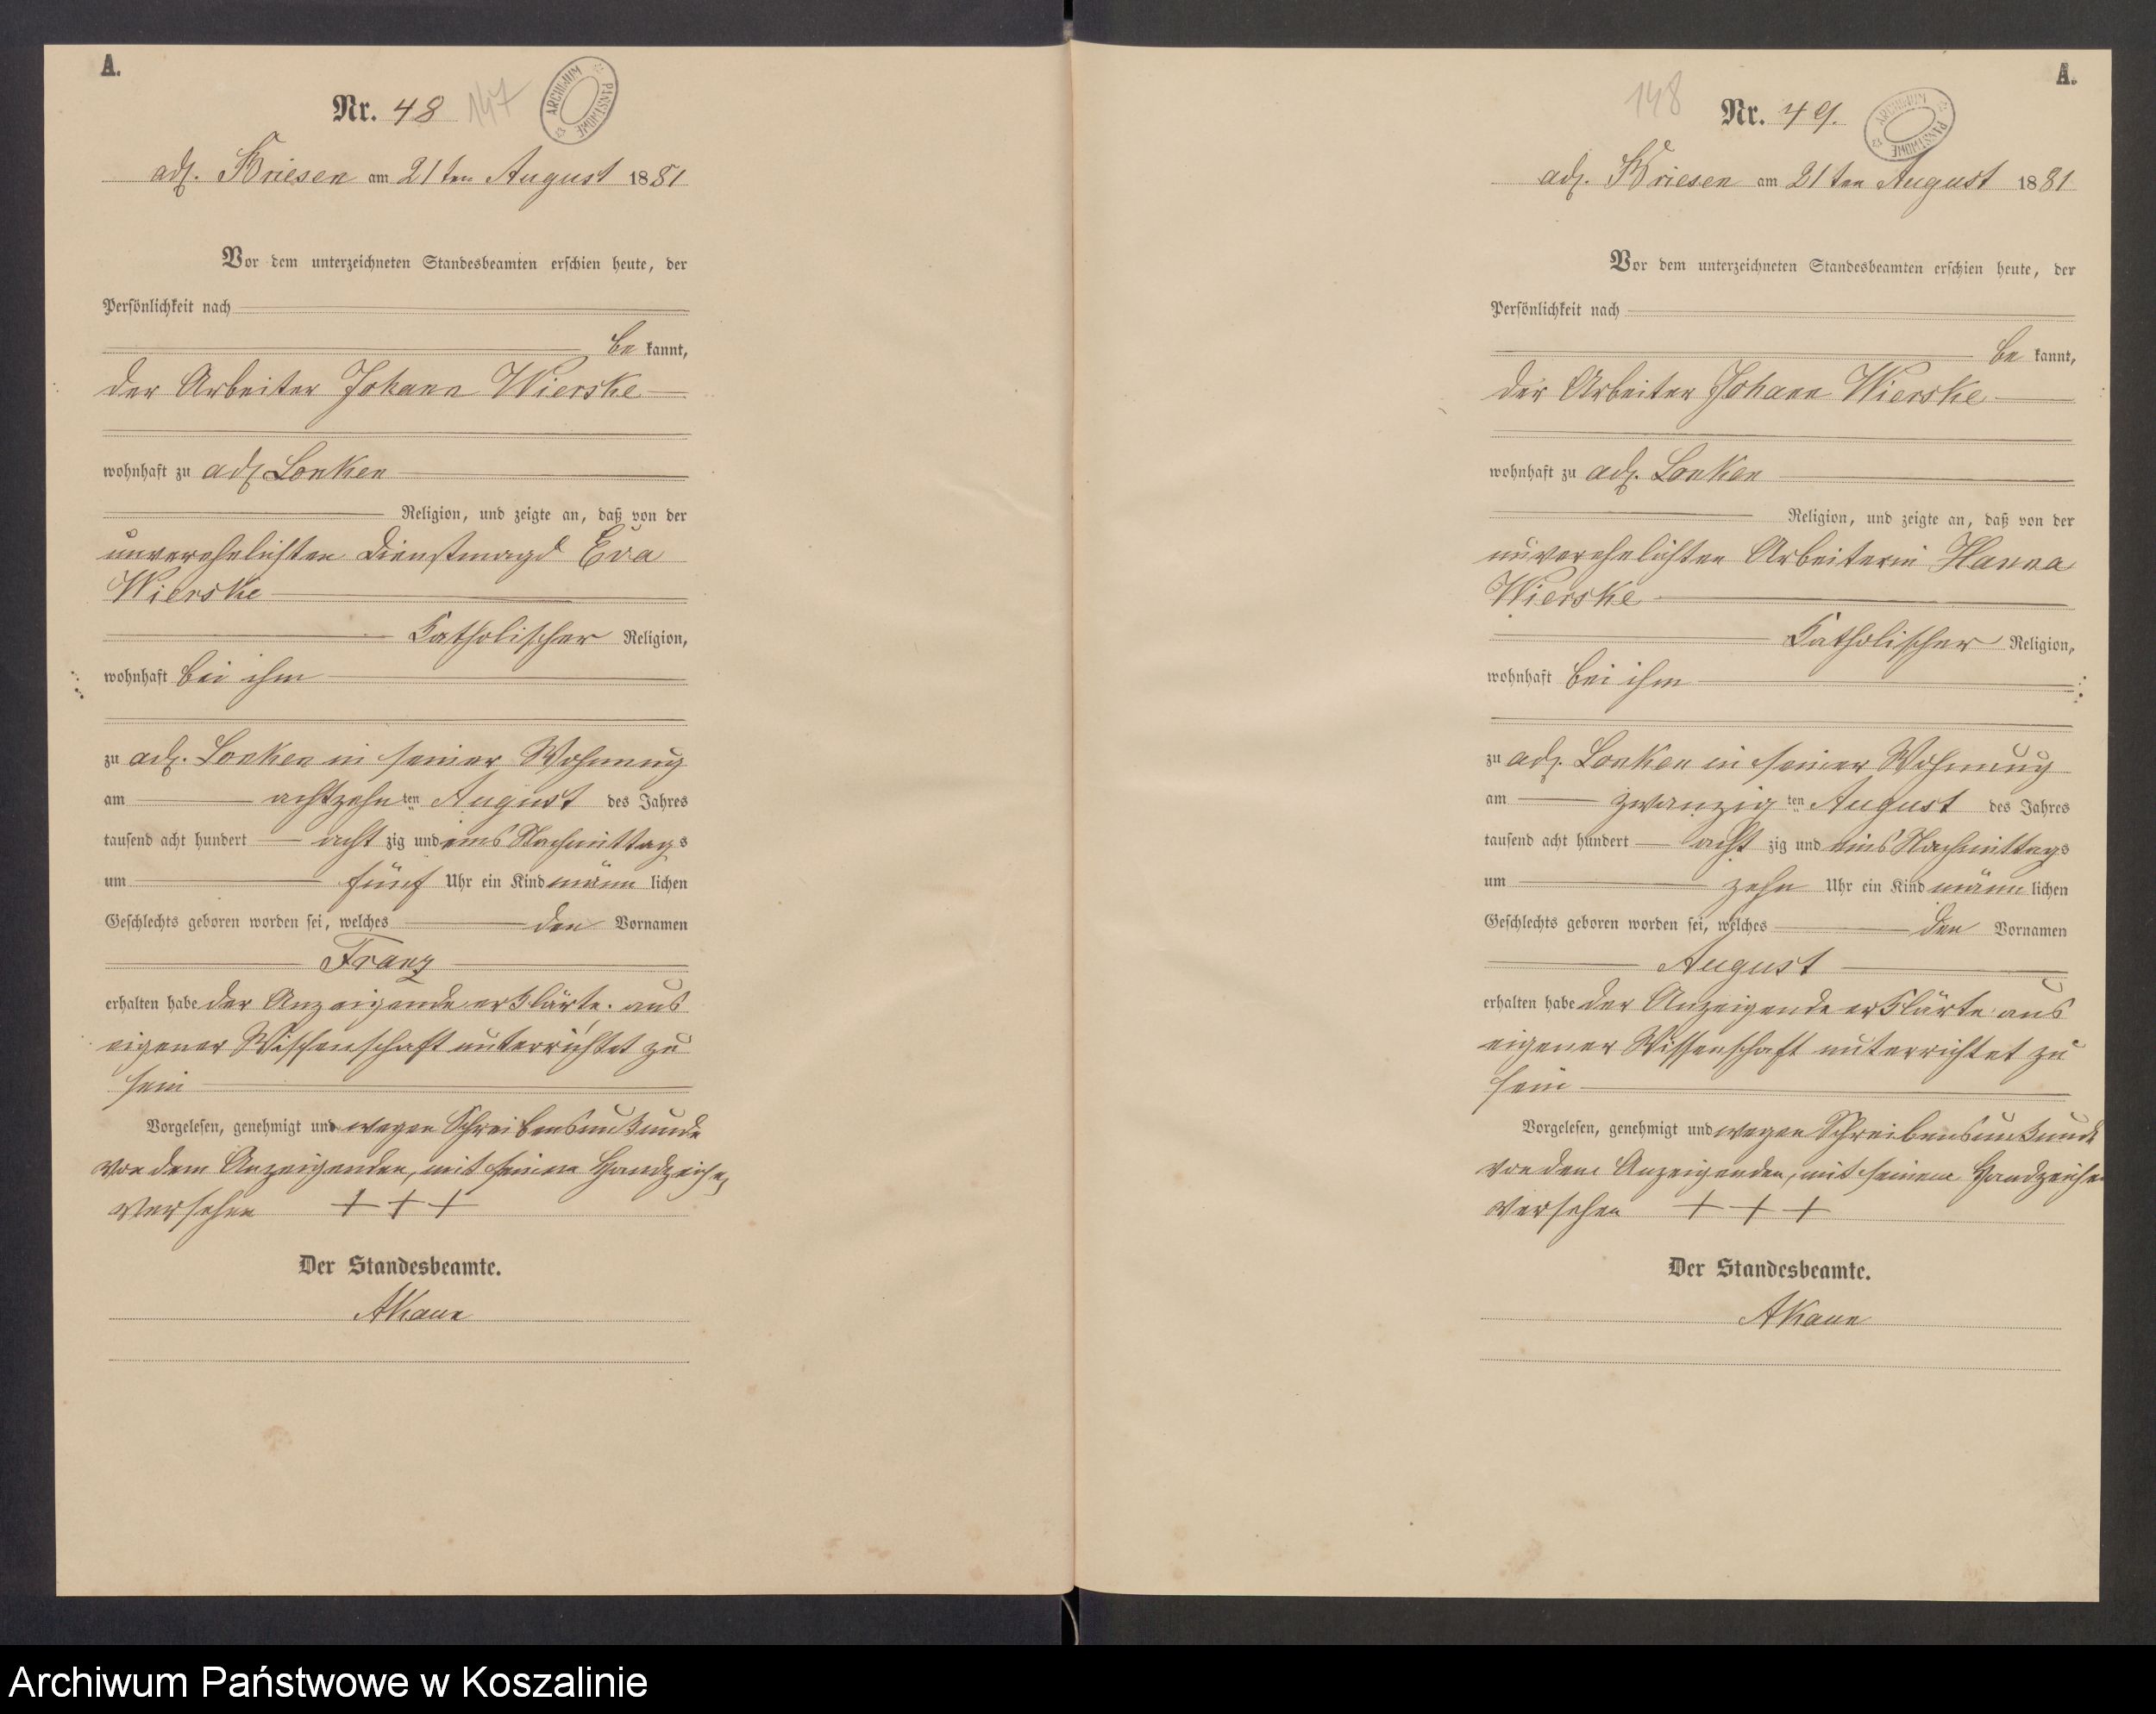 A.
Nr. 48
147
ARCHIWUM PAŃSTWOWE
adl. Briesen am 21ten August 1881
Vor dem unterzeichneten Standesbeamten erschien heute, der
Persönlichkeit nach
be kannt,
der Arbeiter Johann Wierske
wohnhaft zu adl Lonken
Religion, und zeigte an, daß von der
unverehelichten Dienstmagd Eva
Wierske
Katholischer Religion,
wohnhaft bei ihm
zu adl. Lonken in seiner Wohnung
am achtzehn ten August des Jahres
tausend acht hundert acht zig und eins Nachmittags
um fünf Uhr ein Kind männ lichen
Geschlechts geboren worden sei, welches den Vornamen
Franz
erhalten habe der Anzeigende erklärte: aus
eigener Wissenschaft unterrichtet zu
sein
Vorgelesen, genehmigt und wegen Schreibensunkunde
von dem Anzeigenden, mit seinem Handzeichen
versehen + + +
Der Standesbeamte.
A.
148
Nr. 49.
ARCHIWUM PAŃSTWOWE
adl. Briesen am 21ten August 1881
Vor dem unterzeichneten Standesbeamten erschien heute, der
Persönlichkeit nach
be kannt,
der Arbeiter Johann Wierske
wohnhaft zu adl. Lonken
Religion, und zeigte an, daß von der
unverehelichten Arbeiterin Hanna
Wierske
Katholischer Religion,
wohnhaft bei ihm
zu adl. Lonken in seiner Wohnung
am zwanzig ten August des Jahres
tausend acht hundert acht zig und eins Nachmittags
um zehn Uhr ein Kind männ lichen
Geschlechts geboren worden sei, welches den Vornamen
August
erhalten habe der Anzeigende erklärte: aus
eigener Wissenschaft unterrichtet zu
sein
Vorgelesen, genehmigt und wegen Schreibensunkunde
von dem Anzeigenden, mit seinem Handzeichen
versehen + + +
Der Standesbeamte.
Archiwum Państwowe w Koszalinie